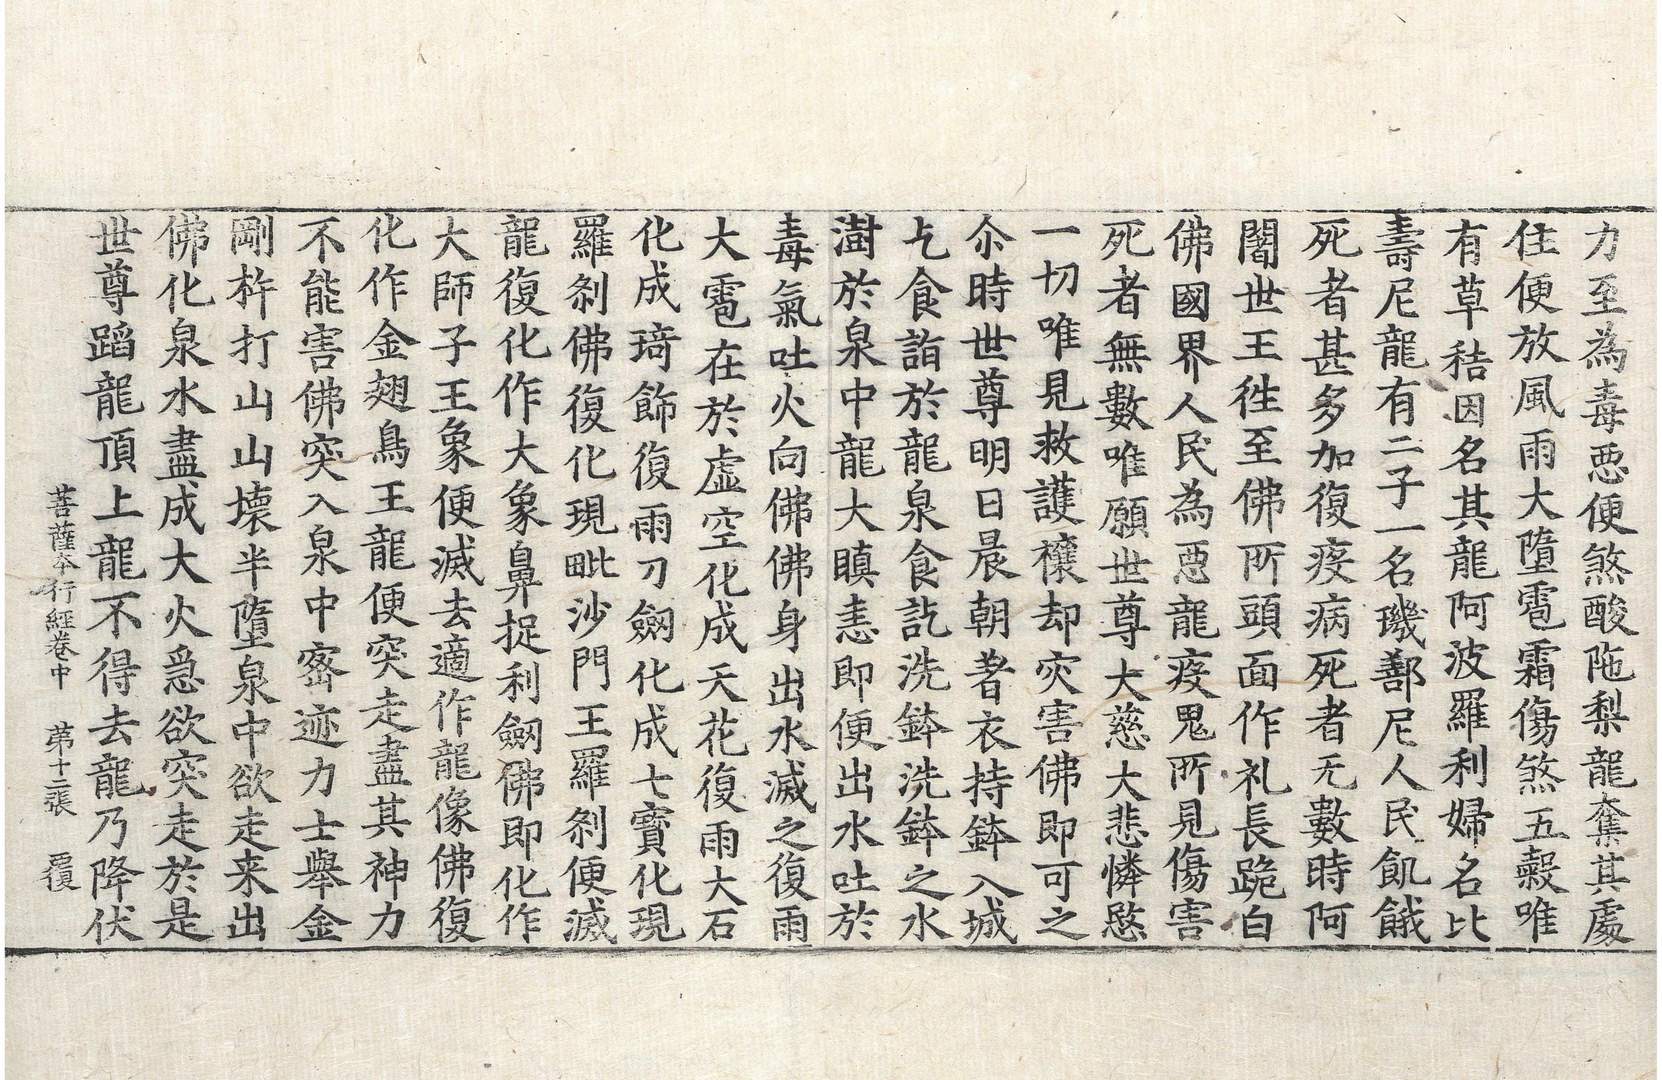 力至為毒悪便煞酸陁梨龍奪其處
住便放風雨大墮雹霜傷煞五糓唯
有草秸因名其龍阿波羅利婦名比
壽尼龍有二子一名璣鄯尼人民飢餓
死者甚多加復疫病死者无數時阿
闍世王徃至佛所頭面作礼長跪白
佛國界人民為惡龍疫鬼所見傷害
死者無數唯願世尊大慈大悲憐愍
一切唯見救護欀却灾害佛即可之
尒時世尊明日晨朝著衣持鉢入城
乞食詣於龍泉食訖洗鉢洗鉢之水
澍於泉中龍大瞋恚即便出水吐於
毒氣吐火向佛佛身出水滅之復雨
大雹在於虛空化成天花復雨大石
化成琦飾復雨刀劔化成七寶化現
羅剎佛復化現毗沙門王羅剎便滅
龍復化作大象鼻捉利劔佛即化作
大師子王象便滅去適作龍像佛復
化作金翅鳥王龍便突走盡其神力
不能害佛突入泉中密迹力士舉金
剛杵打山山壞半墮泉中欲走来出
佛化泉水盡成大火急欲突走於是
世尊蹈龍頂上龍不得去龍乃降伏
菩薩本行經卷中 第十二張 覆